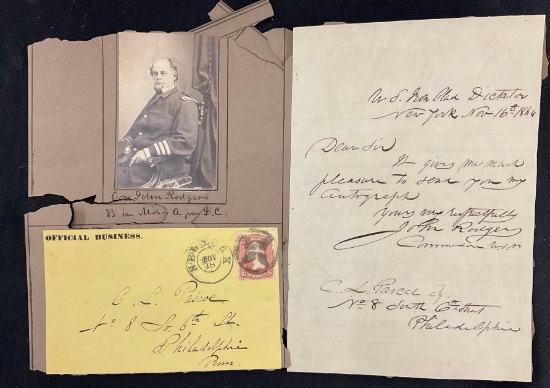 Com John Rodgers
B in Md - A from D.C.
OFFICIAL BUSINESS.
NEW YORK
NOV
18
C. L. Pascoe
No 8 So. 6th St.
Philadelphia
Penn.
U. S. Iron Clad Dictator
New York Nov 16th 1864
Dear Sir
It gives me much
pleasure to send you my
autograph
Yours very respectfully
John Rodgers
Commodore USN
C. L. Pascoe
No 8 South 6th Street
Philadelphia